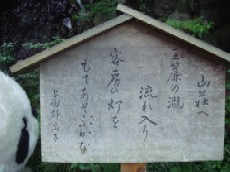 山荘へ
玉簾の瀧
流れ入り
客房の灯を
もてあそぶかな
与謝野晶子